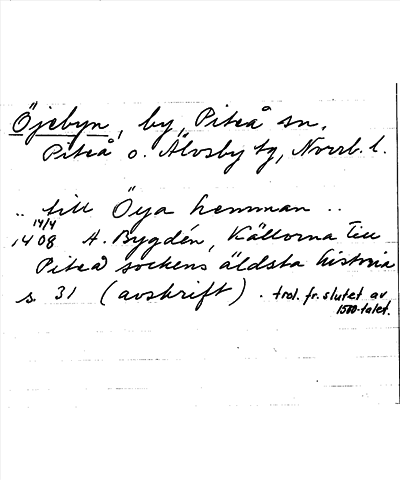 Öjebyn, by, Piteå sn.
Piteå o. Älvsby tg, Norrb. l.
.. till Öya hemman ..
14/4
1408 A. Bygdén, Källorna till
Piteå sockens äldsta historia
s 31 (avskrift). trol. fr. slutet av
1500-talet.